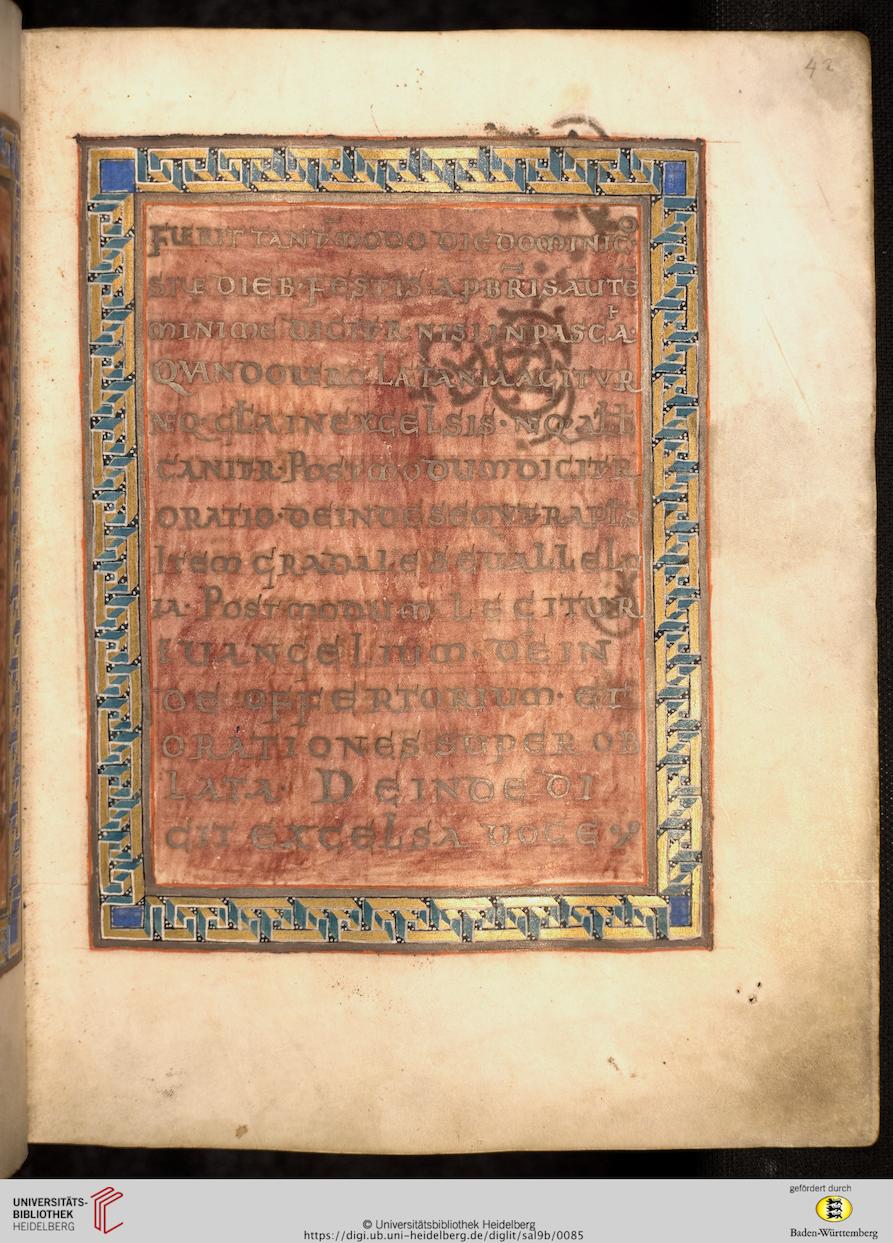 42
FUERIT TANT̄MODO DIE DOMINICO
SIUE DIEB· FESTIS· A PBR̄IS AUTĒ
MINIME DICITR NISI IN PASCA·
QVANDO UERO LAETANIA AGITVR
NEQ· GL̄A IN EXCELSIS· NEQ· ALL̄
CANITR· POSTMODUM DICITR
ORATIO· DEINDE SEQVITR APL̄S
ITEM GRADALE SEU ALLELU
IA· POSTMODUM LEGITUR
EUANGELIUM· DEIN
DE OFFERTORIUM· ET
ORATIONES SUPER OB
LATA· DEINDE DI
CIT EXCELSA UOCE
UNIVERSITÄTS-
BIBLIOTHEK
HEIDELBERG
© Universitätsbibliothek Heidelberg
https://digi.ub.uni-heidelberg.de/diglit/sal9b/0085
gefördert durch
Baden-Württemberg